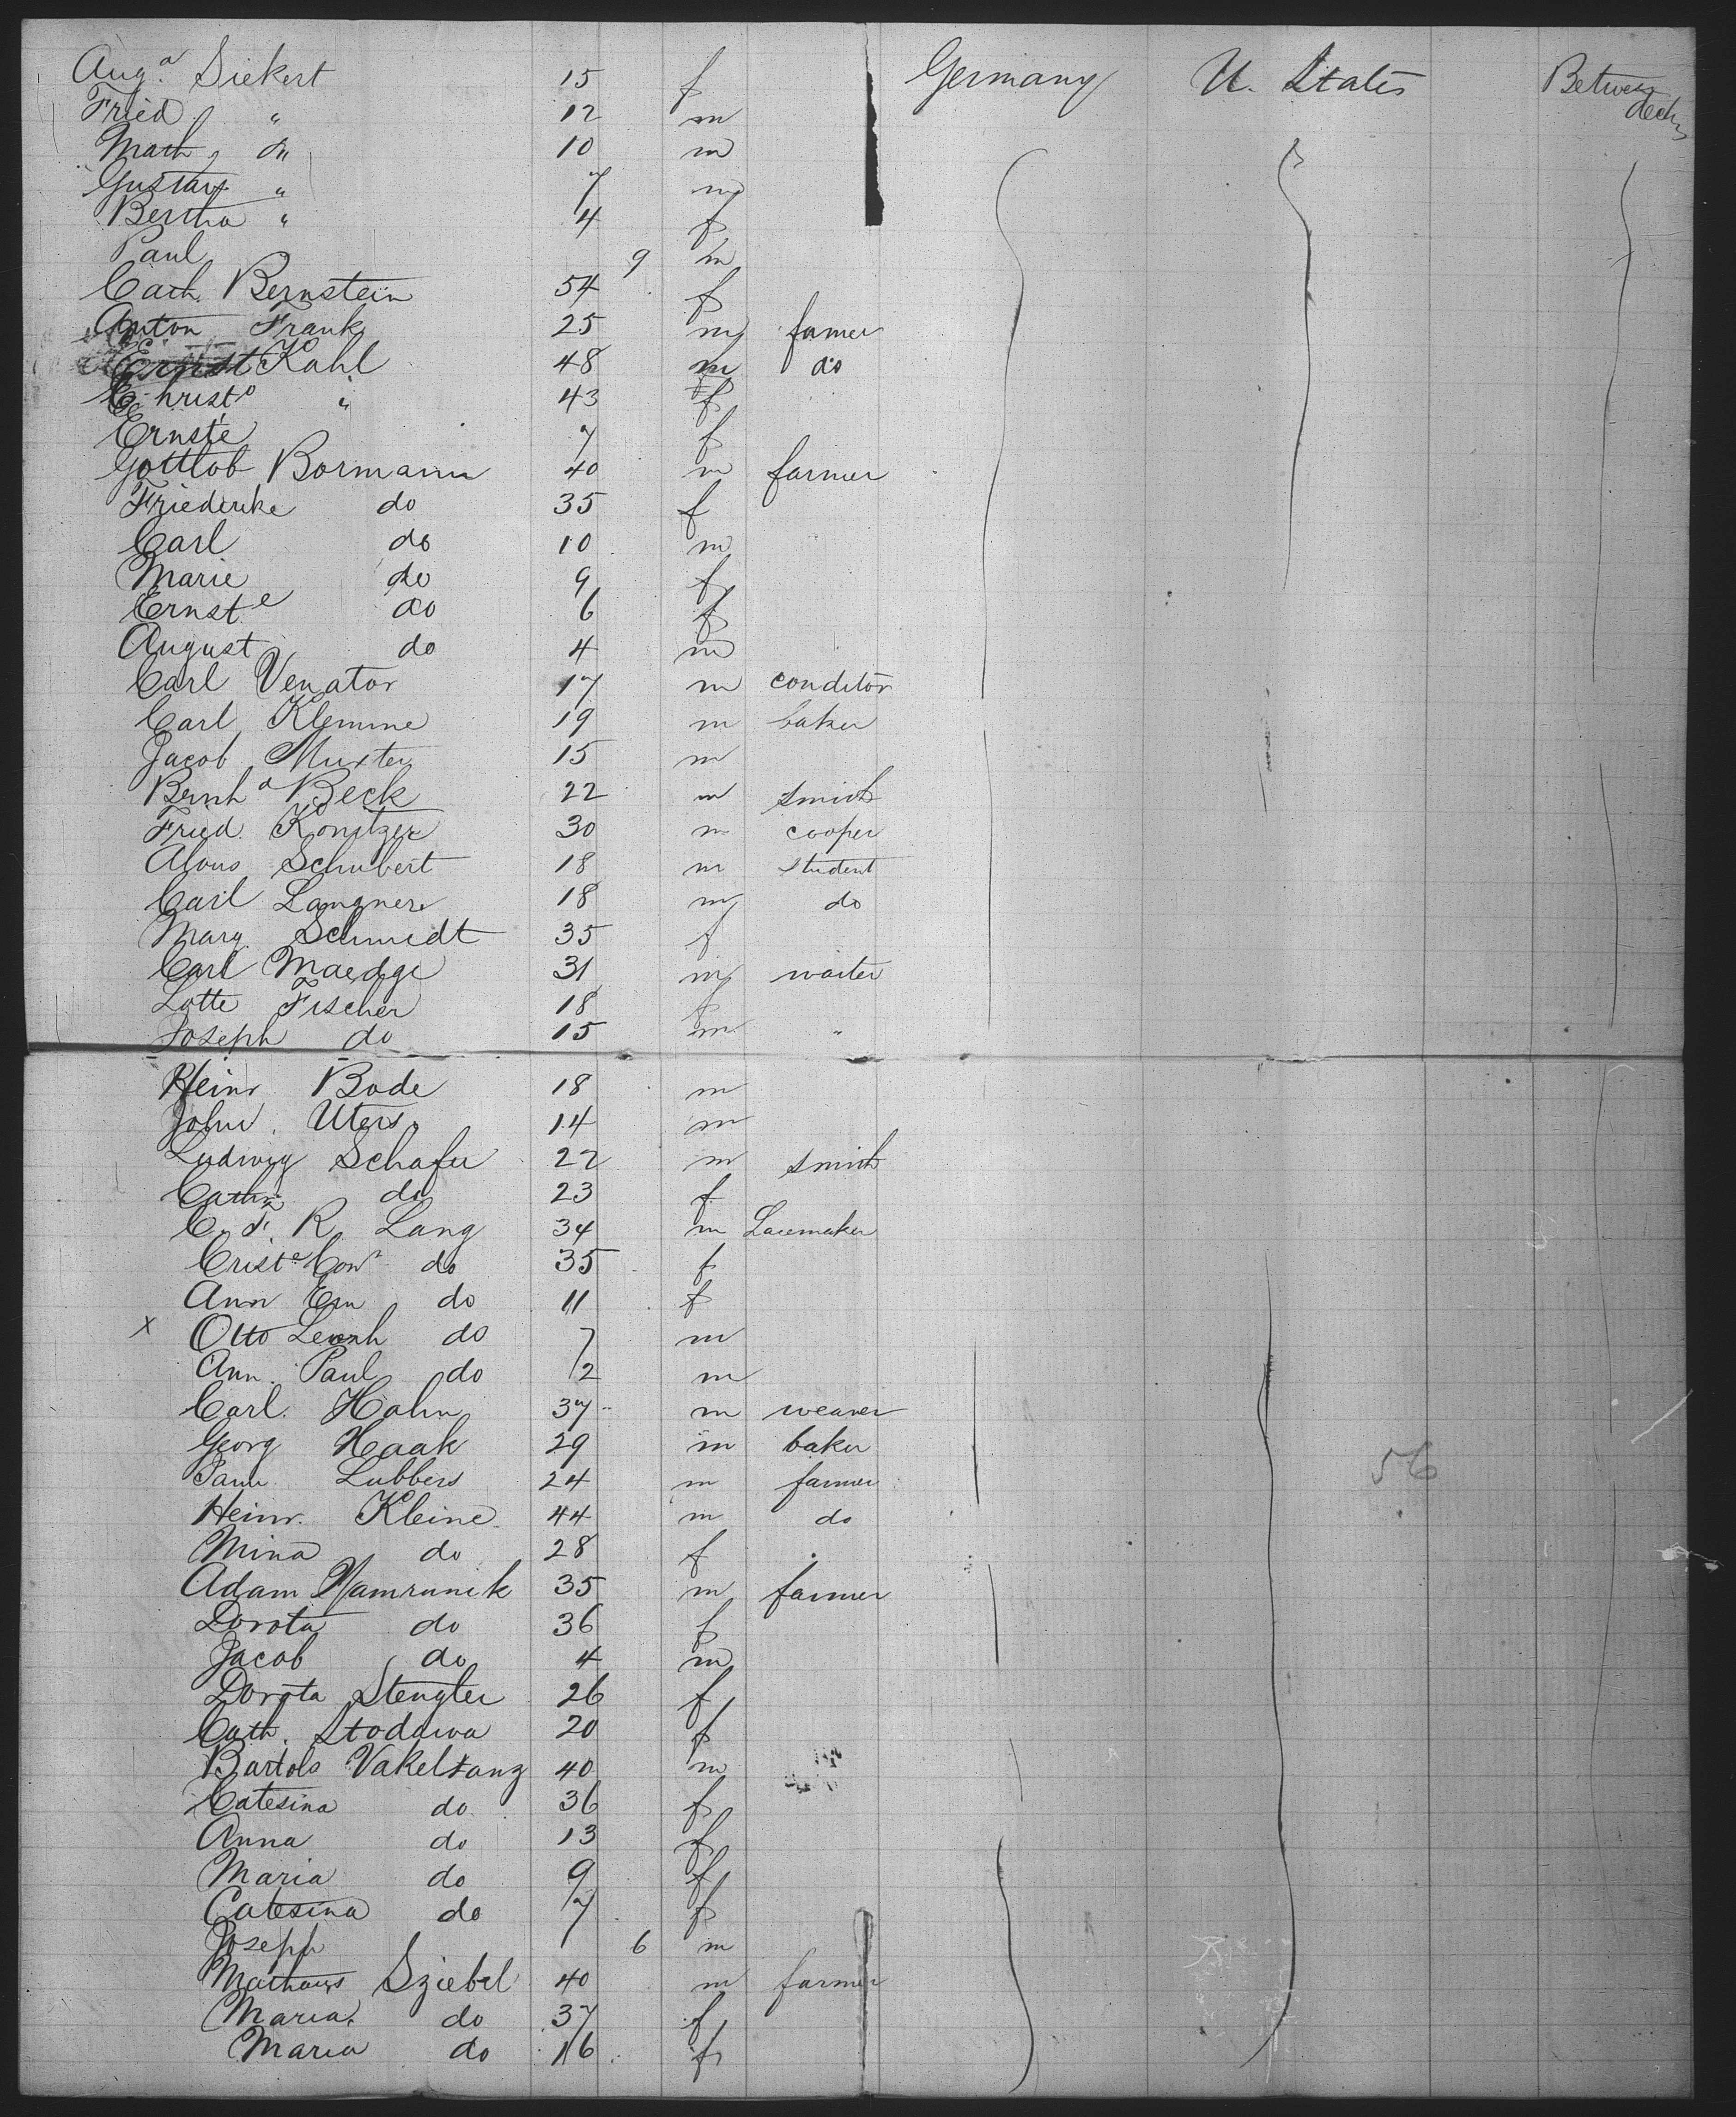 Aug.a Siekert 15 f Germany U. States Between decks
Fried. " 12 m
Math. do 10 m
Gustav " 7 m
Bertha " 4 f
Paul 9 m
Cath. Bernstein 54 f
Anton Frank 25 m farmer
Ernst Kahl 48 m do
Christ " 43 f
Ernste 7 f
Gottlob Bormann 40 m farmer
Friederike do 35 f
Carl do 10 m
Marie do 9 f
Ernste do 6 f
August do 4 m
Carl Venator 17 m conditor
Carl Klemme 19 m baker
Jacob 15 m
Bernhd Beck 22 m smith
Fried. Konitzer 30 m cooper
Alous Schubert 18 m student
Carl Langner 18 m do
Marg. Schmidt 35 f
Carl Maedge 31 m waiter
Lotte Fischer 18 f
Joseph do 15 m "
Heinr Bode 18 m
John. Uters 14 m
Ludwig Schafer 22 m smith
Cath do 23 f
C. F. R. Lang 34 m Lacemaker
Criste Con do 35 f
Ann Em do 11 f
x Otto Leonh do 7 m
Ann. Paul do 1/2 m
Carl. Hahn 37 m weaver
Georg Haak 29 m baker
Lubbers 24 m farmer 56
Heinr. Kleine 44 m do
Mina do 28 f
Adam Namrunik 35 m farmer
Dorota do 36 f
Jacob do 4 m
Dorota Stengter 26 f
Cath. Stodawa 20 f
Bartols Vakeltanz 40 m
Catesina do 36 f
Anna do 13 f
Maria do 9 f
Catesina do 7 f
Joseph 6 m
Mathaus Sziebel 40 m farmer
Maria do 37 f
Maria do 16 f